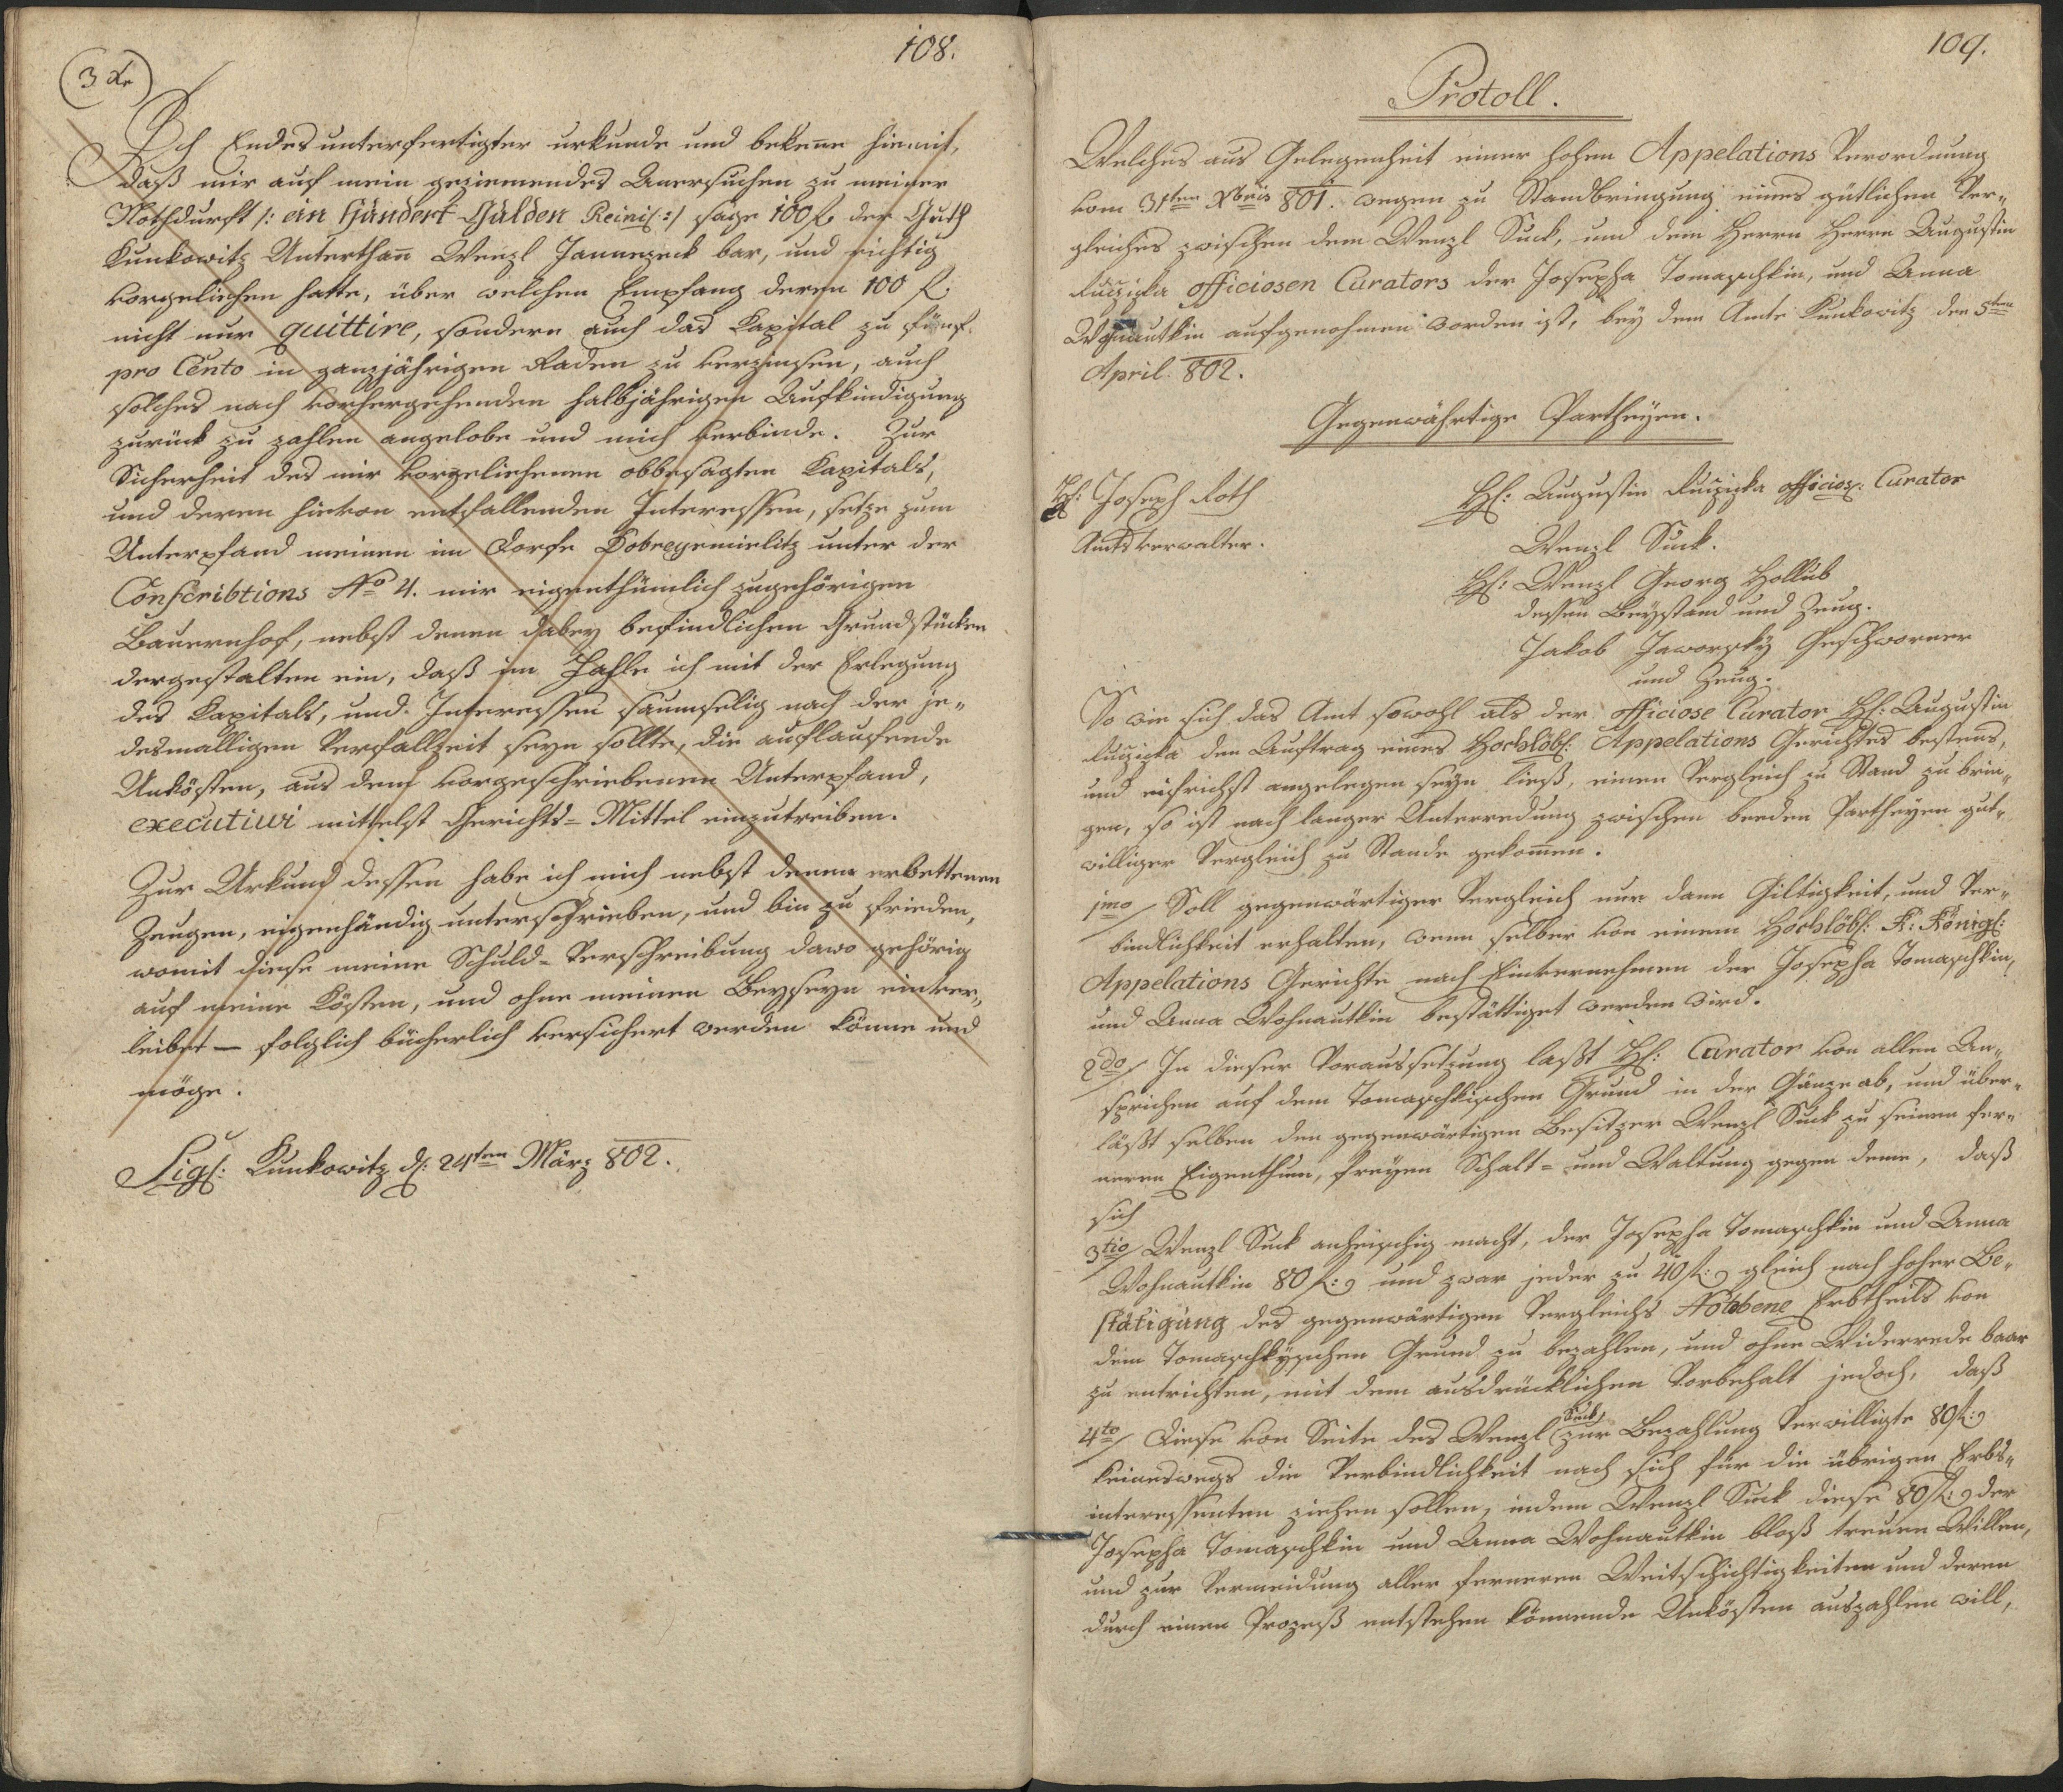 108.
3 Xr
Ich Endesunterfertigter urkunde und bekenne hiemit,
daß mir auf mein geziemendes Anersuchen zu meiner
Nothdurft /: ein Hundert Gulden Reinis: :/ sage 100 f. der Guth
Kunkowitz Unterthan̄ Wenzl Jannezeck bar, und richtig
vorgeliehen hatte, über welchen Empfang deren 100 f.
nicht nur quittire, sondern auch das Kapital zu fünf
pro Cento in ganzjährigen Raden zu verzinsen, auch
solches nach vorhergehenden halbjährigen Aufkindigung
zurück zu zahlen angelobe und mich verbinde. Zur
Sicherheit des mir vorgeliehenen obbesagten Kapitals,
und deren hievon entfallenden Interessen, setze zum
Unterpfand meinen im Dorfe Dobregemielitz unter der
Conscribtions No 4. mir eigenthümlich zugehörigen
Bauernhof, nebst denen dabey befindlichen Grundstücken
dergestalten ein, daß im Fahle ich mit der Erlegung
des Kapitals, und Interessen saumselig nach der je„
desmalligen Verfallzeit seyn sollte, die auflaufende
Unkösten, aus dem vorgeschriebenen Unterpfand,
executiui mittelst Gerichts- Mittel einzutreiben.
Zur Urkund dessen habe ich mich nebst denen erbettenen
Zeugen, eigenhändig unterschrieben, und bin zu frieden,
womit diese meine Schuld- Verschreibung dawo gehörig
auf meine Kösten, und ohne meinen Beyseyn einver„
leibet — folglich bücherlich versichert werden könne und
möge.
Sigl: Kunkowitz d: 24ten März 802.
109.
Protoll.
Welches aus Gelegenheit einer hohen Appelations Verordnung
vom 31ten Xbris 801. wegen zu Standbringung eines gütlichen Ver„
gleiches zwischen dem Wenzl Suck, und dem Herrn Herrn Augustin
Ruziczka officiosen Curators der Josepha Tomaschkin, und Anna
Wohnautkin aufgenohmen worden ist, bey dem Amte Kunkowitz den 5ten
April 802.
Gegenwährtige Partheyen.
H: Joseph Roth
Amtsverwalter.
H: Augustin Ruziczka officios: Curator
Wenzl Suck.
H: Wenzl Georg Hollub
dessen Beystand und Zeug.
Jakob Jaworsky Geschworner
und Zeug.
So wie sich das Amt sowohl als der officiose Curator H: Augustin
Ruziczka den Auftrag eines Hochlöbl: Appelations Gerichtes bestens,
und eifrichst angelegen seyn ließ, einen Vergleich zu Stand zu brin„
gen, so ist nach langer Unterredung zwischen beeden Partheyen gut„
williger Vergleich zu Stande gekom̄en.
1mo/ Soll gegenwärtiger Vergleich nur dann Giltigkeit, und Ver„
bindlichkeit erhalten, wenn selber von einem Hochlöbl: K: Königl:
Appelations Gerichte nach Einvernehmen der Josepha Tomaschkin,
und Anna Wohnautkin bestättiget werden wird.
2do/ In dieser Voraussetzung laßt H: Curator von allen An„
sprichen auf dem Tomaschkischen Grund in der Gänze ab, und über„
läßt selben den gegenwärtigen Besitzer Wenzl Suck zu seinen fer„
neren Eigenthum, freyen Schalt- und Waltung gegen deme, daß
sich
3tio/ Wenzl Suck anheischig macht, der Josepha Tomaschkin und Anna
Wohnautkin 80 f: und zwar jeder zu 40 f: gleich nach hoher Be„
stätigung des gegenwärtigen Vergleichs Erbtheils von
dem Tomaschkyschen Grund zu bezahlen, und ohne Widerrede baar
zu entrichten, mit dem ausdrücklichen Vorbehalt jedoch, daß
4to/ Diese von Seite des Wenzl Suck zur Bezahlung Verwilligte 80 f:
keineswegs die Verbindlichkeit nach sich für die übrigen Erbs„
interessenten ziehen sollen, indem Wenzl Suck diese 80 f: der
Josepha Tomaschkin und Anna Wohnautkin bloß treuen Willen,
und zur Vermeidung aller ferneren Weitschichtigkeiten und deren
durch einen Prozeß entstehen könnende Unkösten auszahlen will,